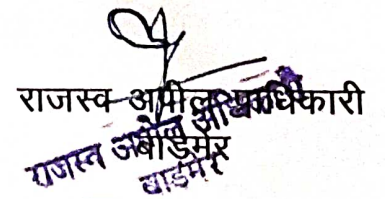 राजस्व अपील प्राधिकारी
बाडमेर
राजस्व अपील अधिकारी
बाडमेर